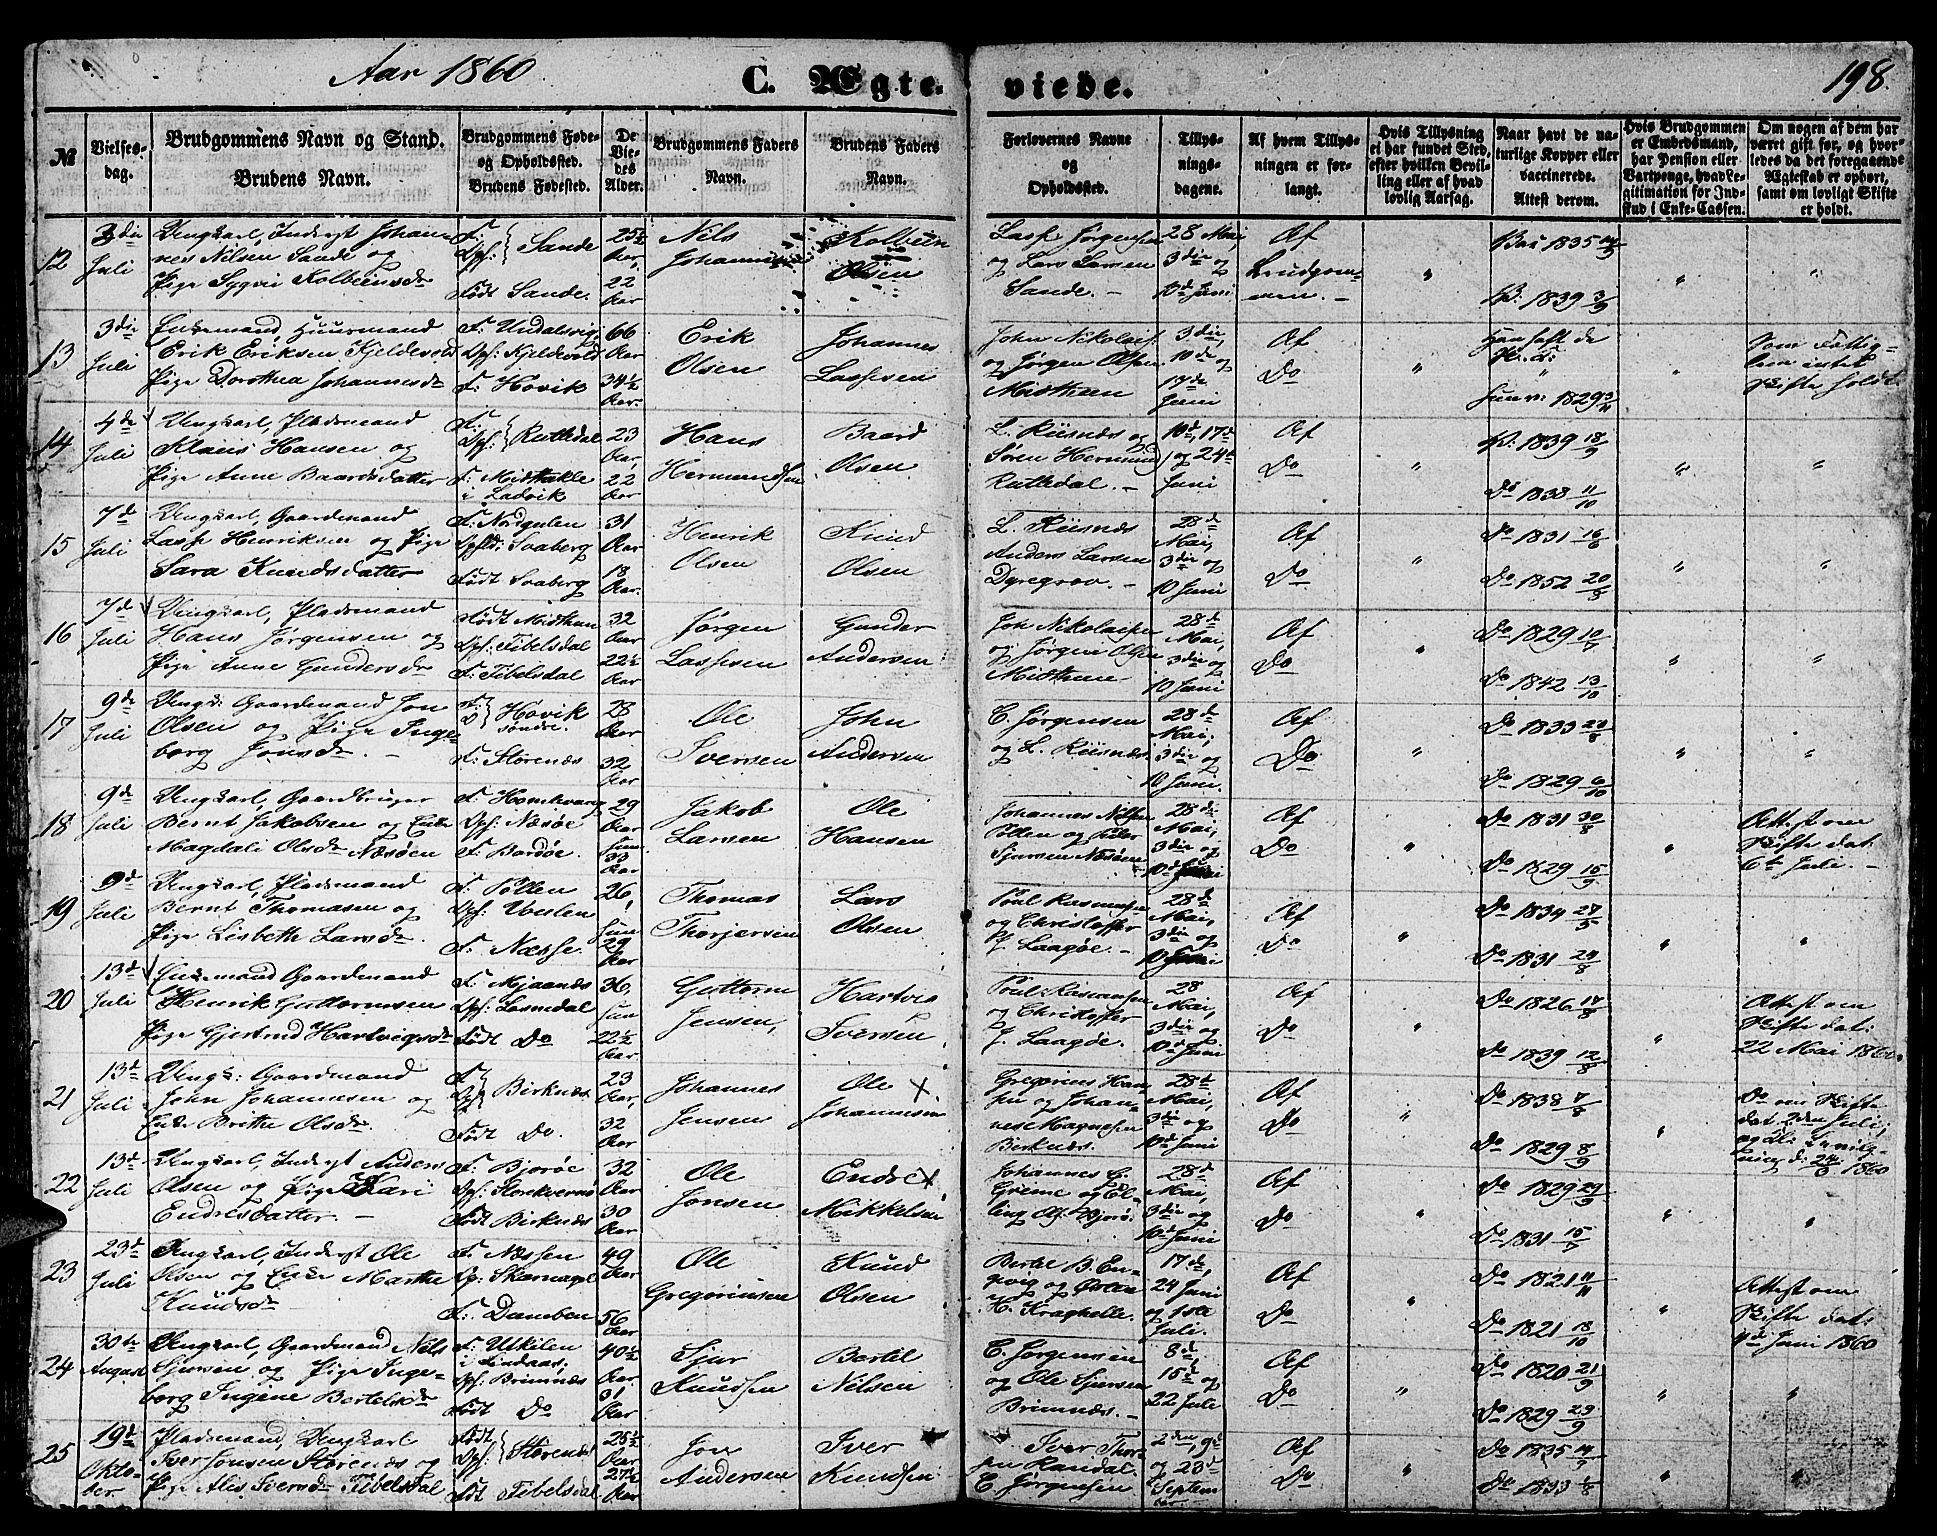 Aar 1860
C. Ægte-
viede.
198.
№
Vielses-
dag.
Brudgommens Navn og Stand.
Brudens Navn.
Brudgommens Føde-
og Opholdssted.
Brudens Fødested.
De
Vie-
des
Alder.
Brudgommens Faders
Navn.
Brudens Faders
Navn.
Forlovernes Navne
og
Opholdssted.
Tillys-
nings-
dagene.
Af hvem Tillys-
ningen er for-
langt.
Hvis Tillysning
ei har fundet Sted,
efter hvilken Bevil-
ling eller af hvad
lovlig Aarsag.
Naar havt de na-
turlige Kopper eller
vaccinerede.
Attest derom.
Hvis Brudgommen
er Embedsmand,
har Pension eller
Vartpenge, hvad Le-
gitimation for Ind-
skud i Enke-Cassen.
Om nogen af dem har
været gift før, og hvor-
ledes da det foregaaende
Ægteskab er ophørt,
samt om lovligt Skifte
er holdt.
12
3die Juli
Ungkarl, Inderst Johan-
nes Nilsen Sande og
Pige Sygni Kolbeensdr
F: Opf: } Sande
Født Sande.
25½ Aar,
22 Aar
Nils
Kolbeen
Olsen
Lasse Jørgensen
og Lars Larsen
Sande. –
28 Mai,
3die og
10d Juni
Af
Brudgom-
men. –
1835
1839 3/9
13
3die Juli
Enkemand, Huusmand
Erik Eriksen Kjeldevold
Pige Dorthea Johannesdr
F: Undalsvig
Opf: Kjeldevold
F: Hovik
66 Aar
34½ Aar.
Erik
Olsen
Johannes
Lassesen
John Nikolais.
og Jørgen Olsen
Midthun
3die,
10de og
17de Juni
Af
Do
Han haft de
1829 3/11
Som Fattig-
lem intet
Skifte holdt
14
4de Juli
Ungkarl, Pladsmand
Klaus Hansen og
Pige Anne Baardsdatter
F: Opf: } Rutledal
F: Midtkakle
i Ladvik
23 Aar,
22 Aar
Hans
Hermundsen
Baard
Olsen
L. Riisnæs og
Søren Hermund
Rutledal. –
10d, 17de
og 24d
Juni
Af
Do
1839 18/9
Do 1838 11/10
15
7d Juli
Ungkarl, Gaardmand
Lasse Henriksen og Pige
Sara Knudsdatter
F: Nordgulen
Opf: Svaberg
Født Svaberg
31 Aar
18 Aar.
Henrik
Olsen
Knud
Olsen
L. Riisnæs
Anders Larsen
Dyregrov. –
28de Mai,
3die og
10 Juni
Af
Do
Do 1831 16/6
Do 1852 20/8
16
7d Juli
Ungkarl, Pladsmand
Hans Jørgensen og
Pige Anne Gundersdr
Født Midthun
Opf: Tibelsdal
F: Tibelsdal
32 Aar
22½ Aar
Jørgen
Lassesen
Gunder
Andersen
Joh Nikolaisen
og Jørgen Olsen
Midthun –
28de Mai,
3die og
10 Juni
Af
Do
Do 1829 10/7
Do 1842 13/10
17
9de Juli
Ungk: Gaardmand Jon
Olsen og Pige Inge-
borg Jonsdr. –
Hovik
søndre.
F: Storenæs
28 Aar
32 Aar
Ole
Iversen
John
Andersen
C. Jørgensen
og L. Riisnæs
28de Mai,
3die og
10 Juni.
Af
Do
Do 1833 28/8
Do 1829 6/10
18
9de Juli
Ungkarl, Gaardbruger
Bernt Jakobsen og Enke
Magdali Olsdr Næsøen
F: Homkvarg
Opf: Næsøe
F: Bardøe.
29 Aar
33 Aar
Jakob
Larsen
Ole
Hansen
Johannes Nilsen
Pollen og Peter
Sjursen Næsøen
28de Mai,
3die og
10d Juni
Af
Do
Do 1831 30/8
Do 1829 15/9
Attest om
Skifte dat:
6te Juli. –
19
9d Juli
Ungkarl, Pladsmand
Bernt Thomasen og
Pige Lisbeth Larsdr
F: Pollen
F: Næsse.
26,
29 Aar
Thomas
Thorjersen
Lars
Olsen
Poul Rasmusen
og Christoffer
Laagøe. –
28de Mai,
3die og
10 Juni
Af
Do
Do 1834 27/5
Do 1831 24/8
20
13d Juli
Enkemand Gaardmand
Henrik Guttormsen
Pige Gjertrud Hartvigsdr
F: Mjaanæs
Født Do
36,
22½ Aar.
Guttorm
Jensen,
Hartvig
Iversen
Poul Rasmusen
og Christoffer
Laagøe.
28 Mai,
3die og
10d Juni
Af
Do
Do 1826 17/8
Do 1839 12/8
Attest om
Skifte dat:
22 Mai 1860.
21
13d Juli
Ungk: Gaardmand
John Johannesen og
Enke Britha Olsdr
Birknæs
Født Do.
23 Aar,
32 Aar
Johannes
Jensen
Ole
Johannesen
Gregorius Han-
sen og Johan-
nes Magnesen
Birknæs.
28d Mai,
3die og
10d Juni
Af
Do
Do 1838 7/9
Do 1829 8/9
Do om Skifte
dat 2den Juli,
1860
22
13d Juli
Ungkarl, Inderst Anders
Olsen og Pige Kari
Endresdatter. –
F: Bjorøe
Opf: Storekvernø
Født Birknæs
32 Aar
30 Aar
Ole
Jonsen
Endre
Mikkelsen
Johannes
28de Mai,
3die og
10d Juni
Af
Do
Do 1829 29/9
Do 1831 15/7
23
23d Juli
Ungkarl, Inderst Ole
Olsen og Enke Marthe
Knudsdr
F: Næssen
F: Damben
49 Aar
56 Aar
Ole
Gregoriusen
Knud
Olsen
Bertel B. En-
gvig og Østen
H. Kraghelle.
17de,
24 Juni
og 1ste
Juli.
Af
Do
Do 1821 11/11
Do 1821 18/10
Attest om
Skifte dat:
4d Juni 1860
24
30te August
Ungkarl, Gaardmand Nils
Sjursen og Pige Inge-
borg Ingine Bertelsdr
F: Utkilen
i Lindaas,
Opf: Brimnæs
Født Do
40½ Aar.
31 Aar
Sjur
Knudsen
Bertel
Nilsen
C. Jørgensen
og Ole Sjursen
Brimnæs. –
8d,
15d og
22 Juli
Af
Do
Do 1820 21/9
Do 1829 29/9
25
19d Okto-
ber
Pladsmand, Ungkarl
Iver Jonsen Storenæs og
Pige Alis Iversdr Tibelsdal
Født Opf: } Storenæs
Født Tibelsdal
25½ Aar
27½ Aar
Jon
Andersen
Iver
Knudsen
Iver Thor-
sen Randal.
C. Jørgensen
2den, 9d
og 23d
Septem-
ber
Af
Do
Do 1835
Do 1833 1/8